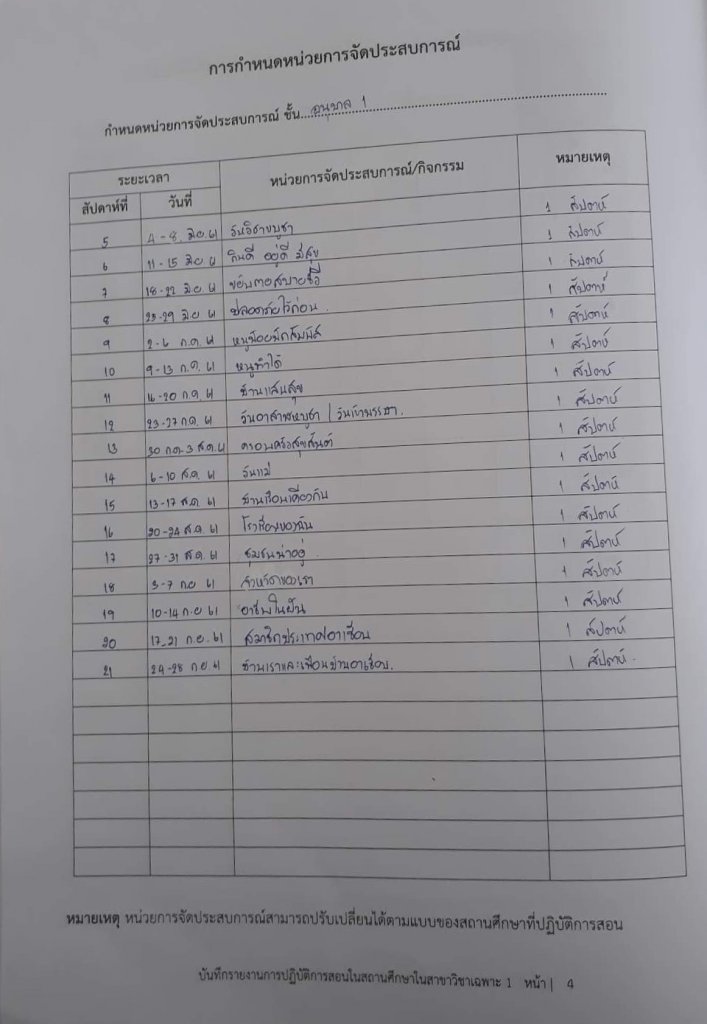 การกำหนดหน่วยการจัดประสบการณ์
กำหนดหน่วยการจัดประสบการณ์ ชั้น อนุบาล 1
ระยะเวลา หน่วยการจัดประสบการณ์/กิจกรรม หมายเหตุ
สัปดาห์ที่ วันที่
5 4-8 มิย 61 วันวิสาขบูชา 1 สัปดาห์
6 11-15 มิย 61 กินดี อยู่ดี มีสุข 1 สัปดาห์
7 18-22 มิย 61 ขยับกายสบายชีวี 1 สัปดาห์
8 25-29 มิย 61 ปลอดภัยไว้ก่อน 1 สัปดาห์
9 2-6 ก.ค. 61 หนูน้อยนักสัมผัส 1 สัปดาห์
10 9-13 ก.ค. 61 หนูทำได้ 1 สัปดาห์
11 16-20 ก.ค. 61 บ้านแสนสุข 1 สัปดาห์
12 23-27 ก.ค. 61 วันอาสาฬหบูชา / วันเข้าพรรษา. 1 สัปดาห์
13 30 ก.ค.-3 ส.ค. 61 ครอบครัวสุขสันต์ 1 สัปดาห์
14 6-10 ส.ค. 61 วันแม่ 1 สัปดาห์
15 13-17 ส.ค. 61 บ้านเรือนเคียงกัน 1 สัปดาห์
16 20-24 ส.ค. 61 โรงเรียนของฉัน 1 สัปดาห์
17 27-31 ส.ค. 61 ชุมชนน่าอยู่ 1 สัปดาห์
18 3-7 ก.ย 61 จังหวัดของเรา 1 สัปดาห์
19 10-14 ก.ย 61 อาชีพในฝัน 1 สัปดาห์
20 17-21 ก.ย. 61 สมาชิกประเทศอาเซียน 1 สัปดาห์
21 24-28 ก.ย 61 บ้านเราและเพื่อนบ้านอาเซียน. 1 สัปดาห์
หมายเหตุ หน่วยการจัดประสบการณ์สามารถปรับเปลี่ยนได้ตามแบบของสถานศึกษาที่ปฏิบัติการสอน
บันทึกรายงานการปฏิบัติการสอนในสถานศึกษาในสาขาวิชาเฉพาะ 1 หน้า | 4